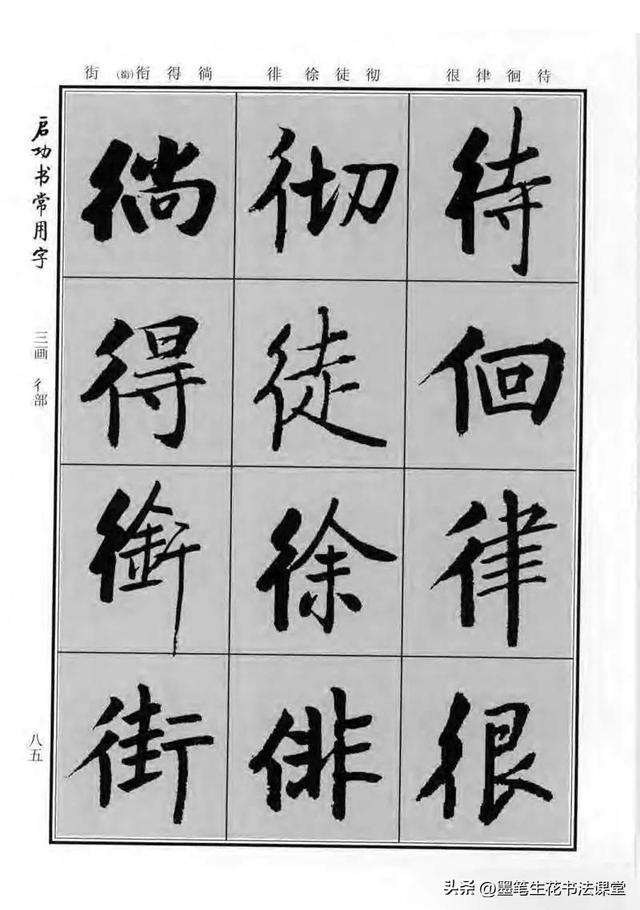 待徊律很
彻徒徐徘
徜得衔(銜)街
启功书常用字
三画 彳部
八五
待
徊
律
很
彻
徒
徐
徘
徜
得
銜
街
头条 @墨笔生花书法课堂